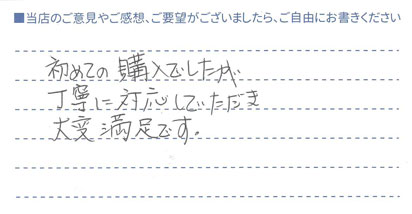 ■当店のご意見やご感想、ご要望がございましたら、ご自由にお書きください
初めての購入でしたが
丁寧に対応していただき
大変満足です。